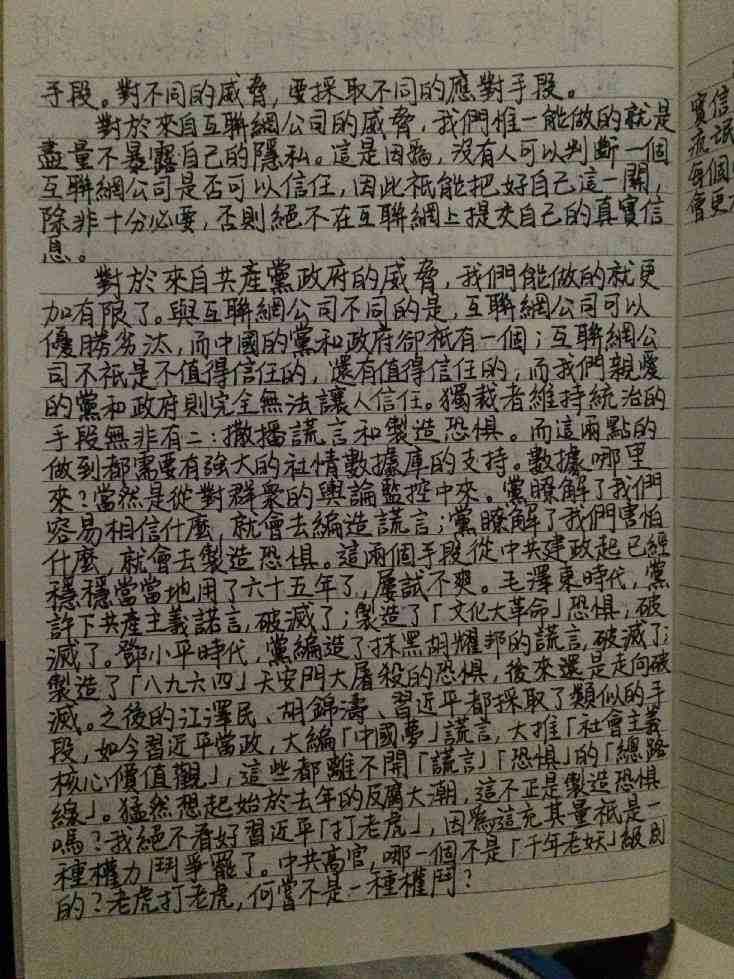 手段。對不同的威脅,要採取不同的應對手段。
對於來自互聯網公司的威脅,我們惟一能做的就是
盡量不暴露自己的隱私。這是因為,沒有人可以判斷一個
互聯網公司是否可以信任,因此祇能把好自己這一關,
除非十分必要,否則絕不在互聯網上提交自己的真實信
息。
對於來自共產黨政府的威脅,我們能做的就更
加有限了。與互聯網公司不同的是,互聯網公司可以
優勝劣汰,而中國的黨和政府卻祇有一個;互聯網公
司不祇是不值得信任的,還有值得信任的,而我們親愛
的黨和政府則完全無法讓人信任。獨裁者維持統治的
手段無非有二:撒播謊言和製造恐懼。而這兩點的
做到都需要有強大的社情數據庫的支持。數據哪里
來?當然是從對群衆的輿論監控中來。黨瞭解了我們
容易相信什麼,就會去編造謊言;黨瞭解了我們害怕
什麼,就會去製造恐懼。這兩個手段從中共建政起已經
穩穩當當地用了六十五年了,屢試不爽。毛澤東時代,黨
許下共產主義諾言,破滅了;製造了「文化大革命」恐懼,破
滅了。鄧小平時代,黨編造了抹黑胡耀邦的謊言,破滅了;
製造了「八九六四」天安門大屠殺的恐懼,後來還是走向破
滅。之後的江澤民、胡錦濤、習近平都採取了類似的手
段,如今習近平當政,大編「中國夢」謊言,大推「社會主義
核心價值觀」,這些都離不開「謊言」「恐懼」的「總路
線」。猛然想起始於去年的反腐大潮,這不正是製造恐懼
嗎?我絕不看好習近平「打老虎」,因為這充其量祇是一
種權力鬥爭罷了。中共高官,哪一個不是「千年老妖」級別
的?老虎打老虎,何嘗不是一種權鬥?
實信
每個
會更